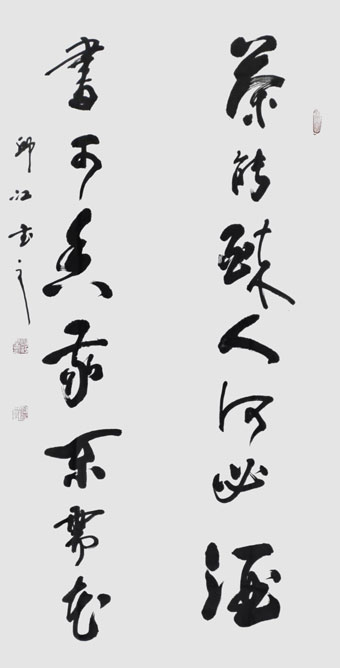 茶能醉人何必酒
書可香我不需花
江書